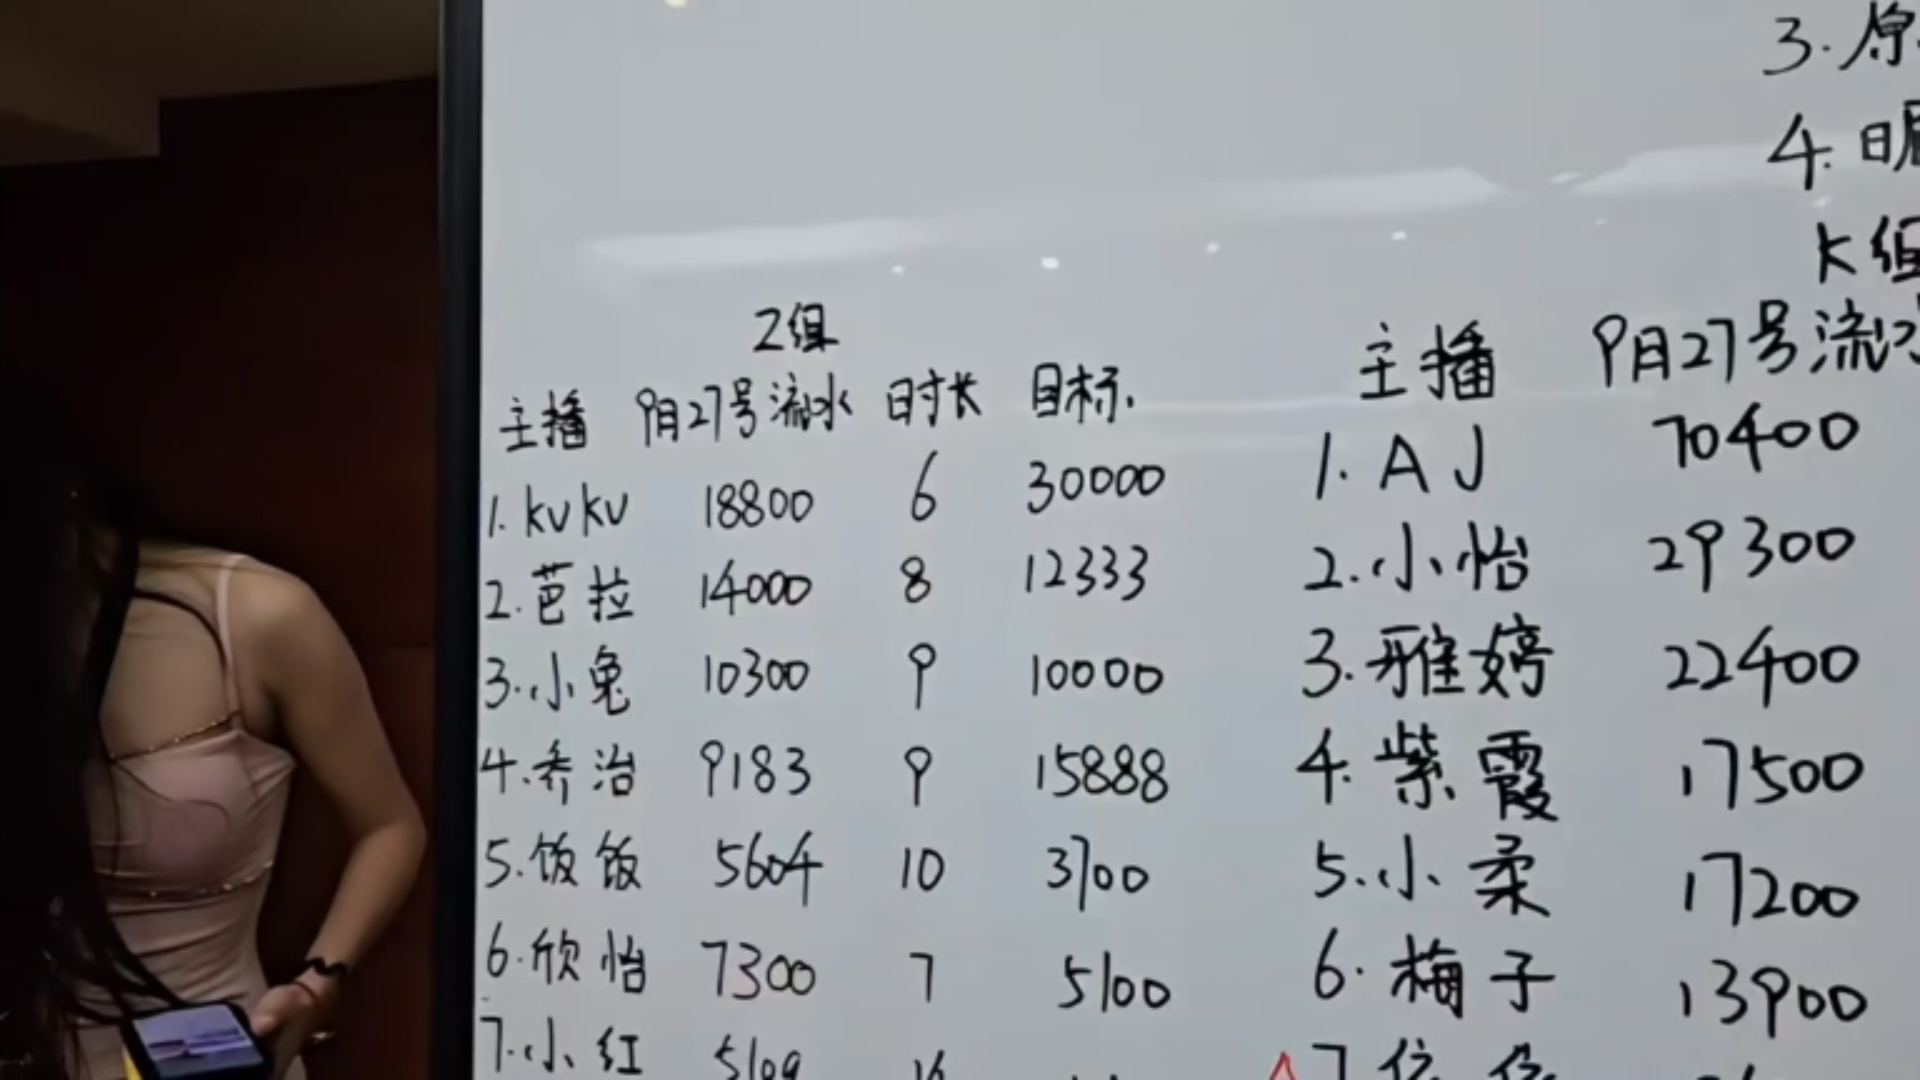 3.原
4.
K组
Z组
主播 9月27号流水 日时长 目标
1.kuku 18800 6 30000
2.芭拉 14000 8 12333
3.小兔 10300 9 10000
4.乔治 9183 9 15888
5.饭饭 5604 10 3700
6.欣怡 7300 7 5100
7.小红 5109
主播 9月27号流水
1.AJ 70400
2.小怡 29300
3.雅婷 22400
4.紫霞 17500
5.小柔 17200
6.梅子 13900
7.